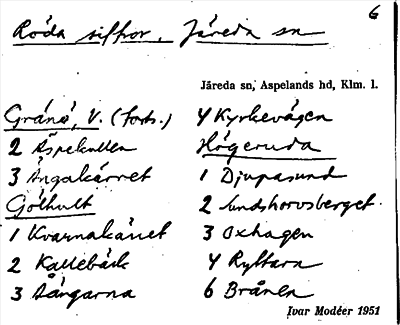 6
Röda siffror. Järeda sn
Järeda sn, Aspelands hd, Klm. l.
Gränö, V. (forts.)
2 Äspekullen
3 Ängakärret
Gölhult
1 Kvarnakärret
2 Kallebäck
3 Sångarna
4 Kyrkevägen
Högeruda
1 Djupasund
2 Lundshorvsberget.
3 Oxhagen
4 Ryttarn
6 Brånen
Ivar Modéer 1951